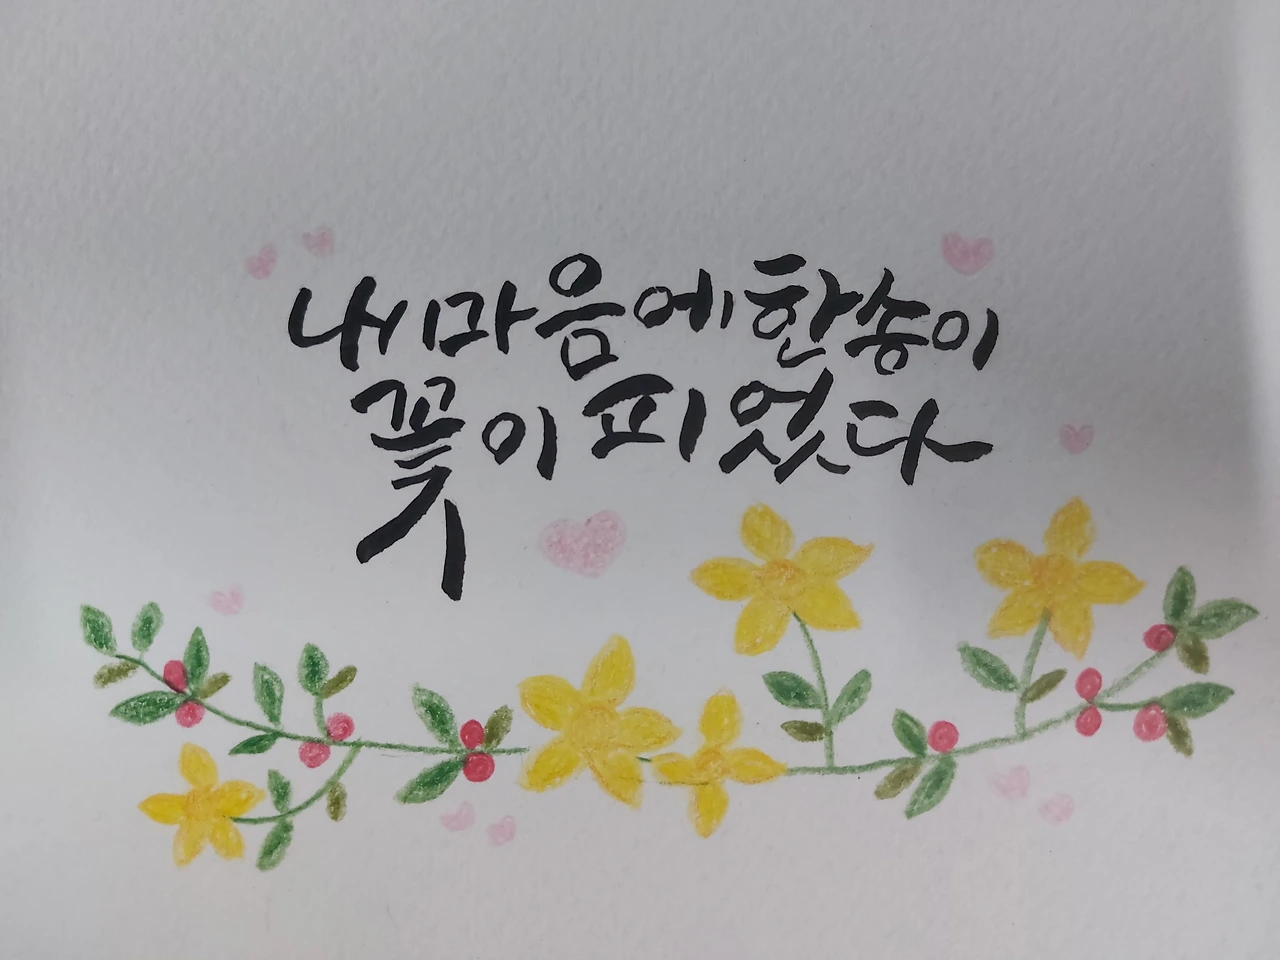 내 마음에 한송이
꽃이 피었다